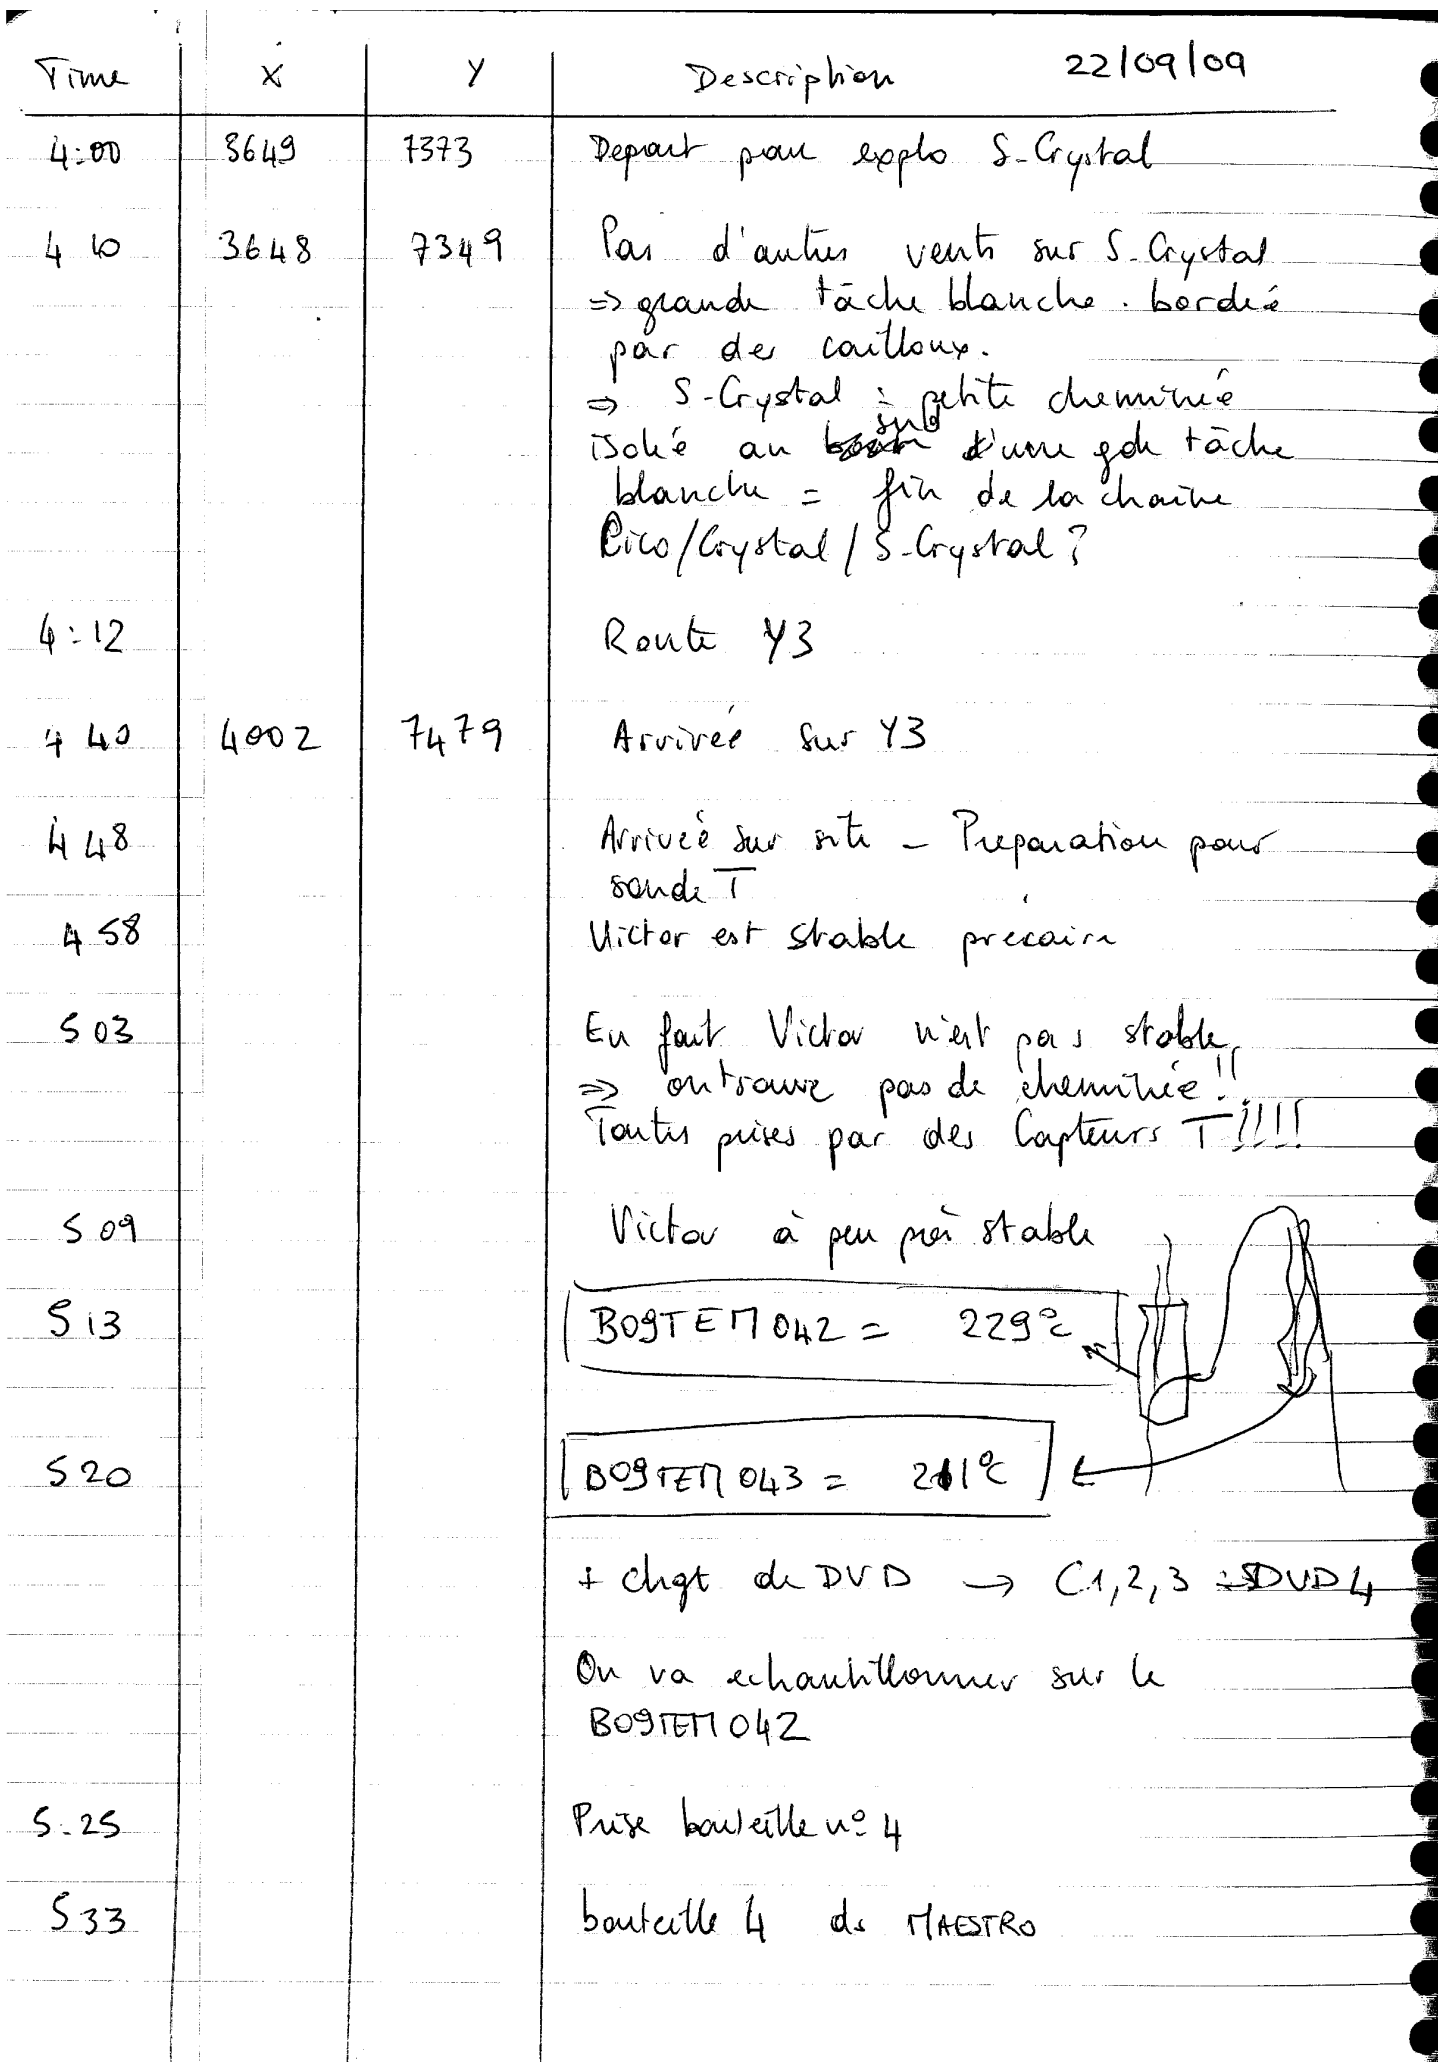 Time X Y Description 22/09/09
4:00 3649 7373 Depart pour explo S-Crystal
4 10 3648 7349 Pas d'autres vents sur S-Crystal
=> grande tâche blanche. bordée
par des cailloux.
=> S-Crystal : petite cheminée
isolée au sud d'une gde tâche
blanche = fin de la chaîne
Pico/Crystal/S-Crystal ?
4:12 Route Y3
4 40 4002 7479 Arrivée sur Y3
4 48 Arrivée sur site - Preparation pour
sonde T
4 58 Victor est stable précaire
5 03 En fait Victor n'est pas stable
=> on trouve pas de cheminée !!
Toutes prises par des Capteurs T !!!!
5 09 Victor à peu près stable
5 13 B09TEM042 = 229°C
5 20 B09TEM043 = 211°C
+ chgt de DVD → C1,2,3 = DVD4
On va echantillonner sur le
B09TEM042
5.25 Prise bouteille n° 4
5 33 bouteille 4 ds MAESTRO